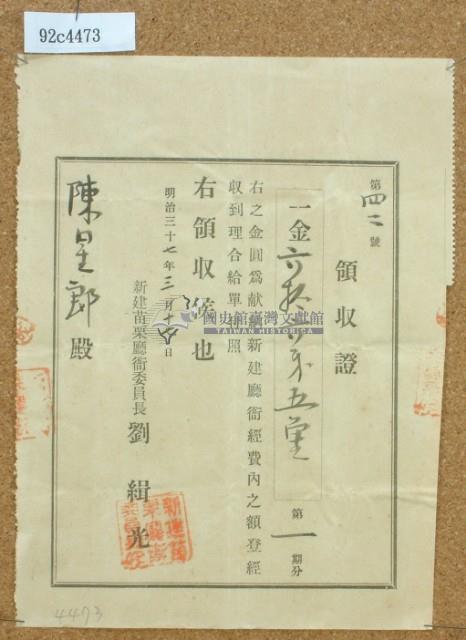 92c4473
第四二號
領收證
一金六拾六錢五厘
第一期分
右之金圓爲献納新建廳衙經費內之額登經
收到理合給單執照
右領收候也
明治三十七年三月十八日
新建苗栗廳衙委員長 劉緝光
陳星郎殿
國史館臺灣文獻館
TAIWAN HISTORICA
4473